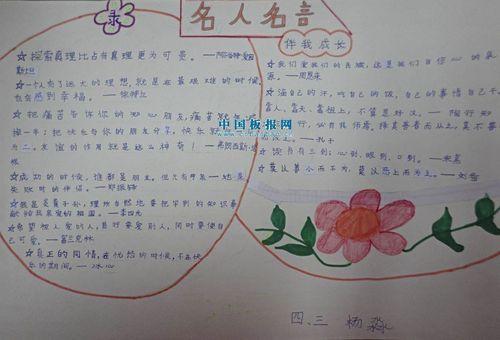 录
名人名言
伴我成长
☆探索真理比占有真理更为可贵。——阿尔伯特·爱因
斯坦
☆一个人有了远大的理想，就是在最艰难的时候，
也会感到幸福。——徐特立
☆把痛苦告诉你的知心朋友，痛苦就会减
掉一半；把快乐与你的朋友分享，快乐就
为二。友谊的作用就是这么神奇！——弗朗西斯·培
根
☆成功的时候，谁都是朋友。但只有母亲——她是
失败时的伴侣。——郑振铎
☆我是炎黄子孙，理所当然地要把学到的知识奉
献给我亲爱的祖国。——李四光
☆希望被人爱的人，首先要爱别人，同时要使自
己可爱。——富兰克林
☆真正的同情，在忧愁的时候，不在快
乐的期间。——冰心
☆我们爱我们的民族，这是我们自信心的泉
源。——周恩来
☆滴自己的汗，吃自己的饭，自己的事情自己干，
靠人，靠天，靠祖上，不算是好汉。——陶行知
行，必有我师焉，择其善者而从之，其不善
之。——孔子
☆读书有三到：心到、眼到、口到。——朱熹
☆莫以善小而不为，莫以恶小而为之。——刘备
中国板报网
四、三 杨淼